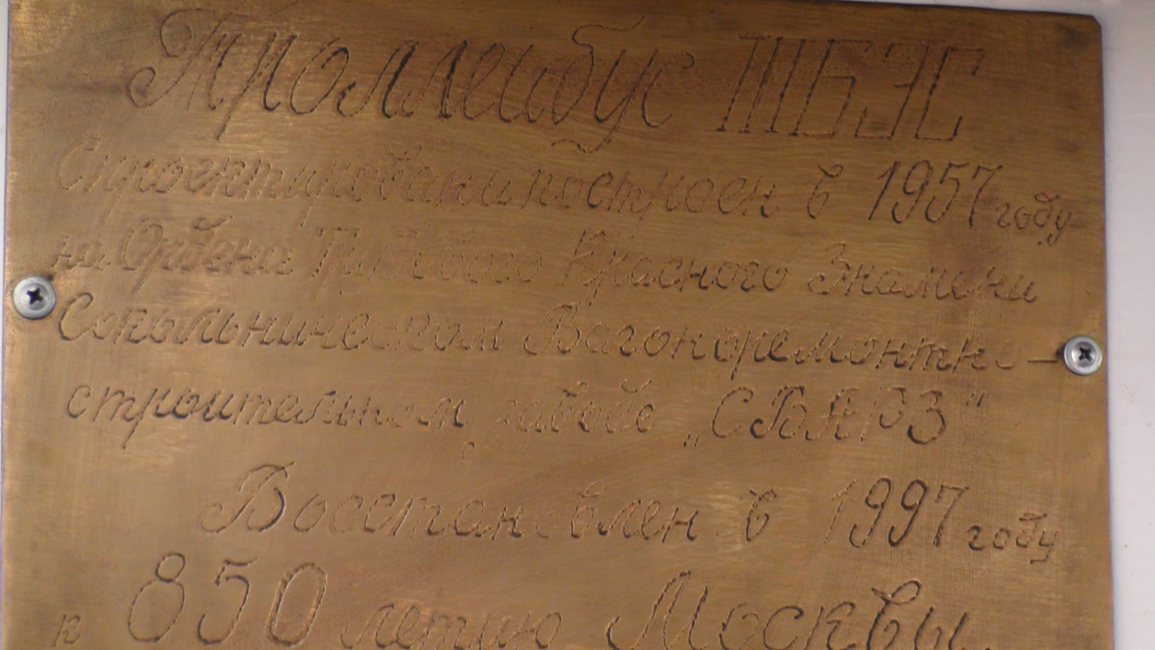 Троллейбус ТБЭС
Спроектирован и построен в 1957 году
на Ордена Трудового Красного Знамени
Сокольническом Вагоноремонтно-
строительном заводе „СВАРЗ"
Восстановлен в 1997 году
к 850 летию Москвы.